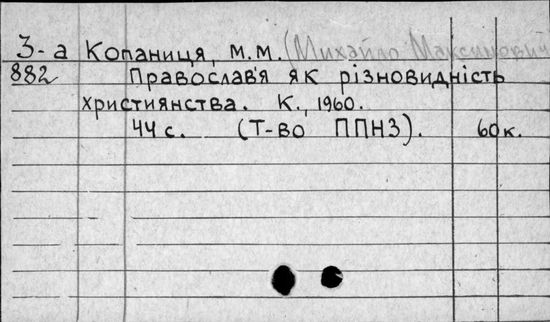 З-а Копаниця, М.М. (Михайло Максимович
882 Православ'я як різновидність
християнства. К., 1960.
44 с. (Т-во ППНЗ). 60к.